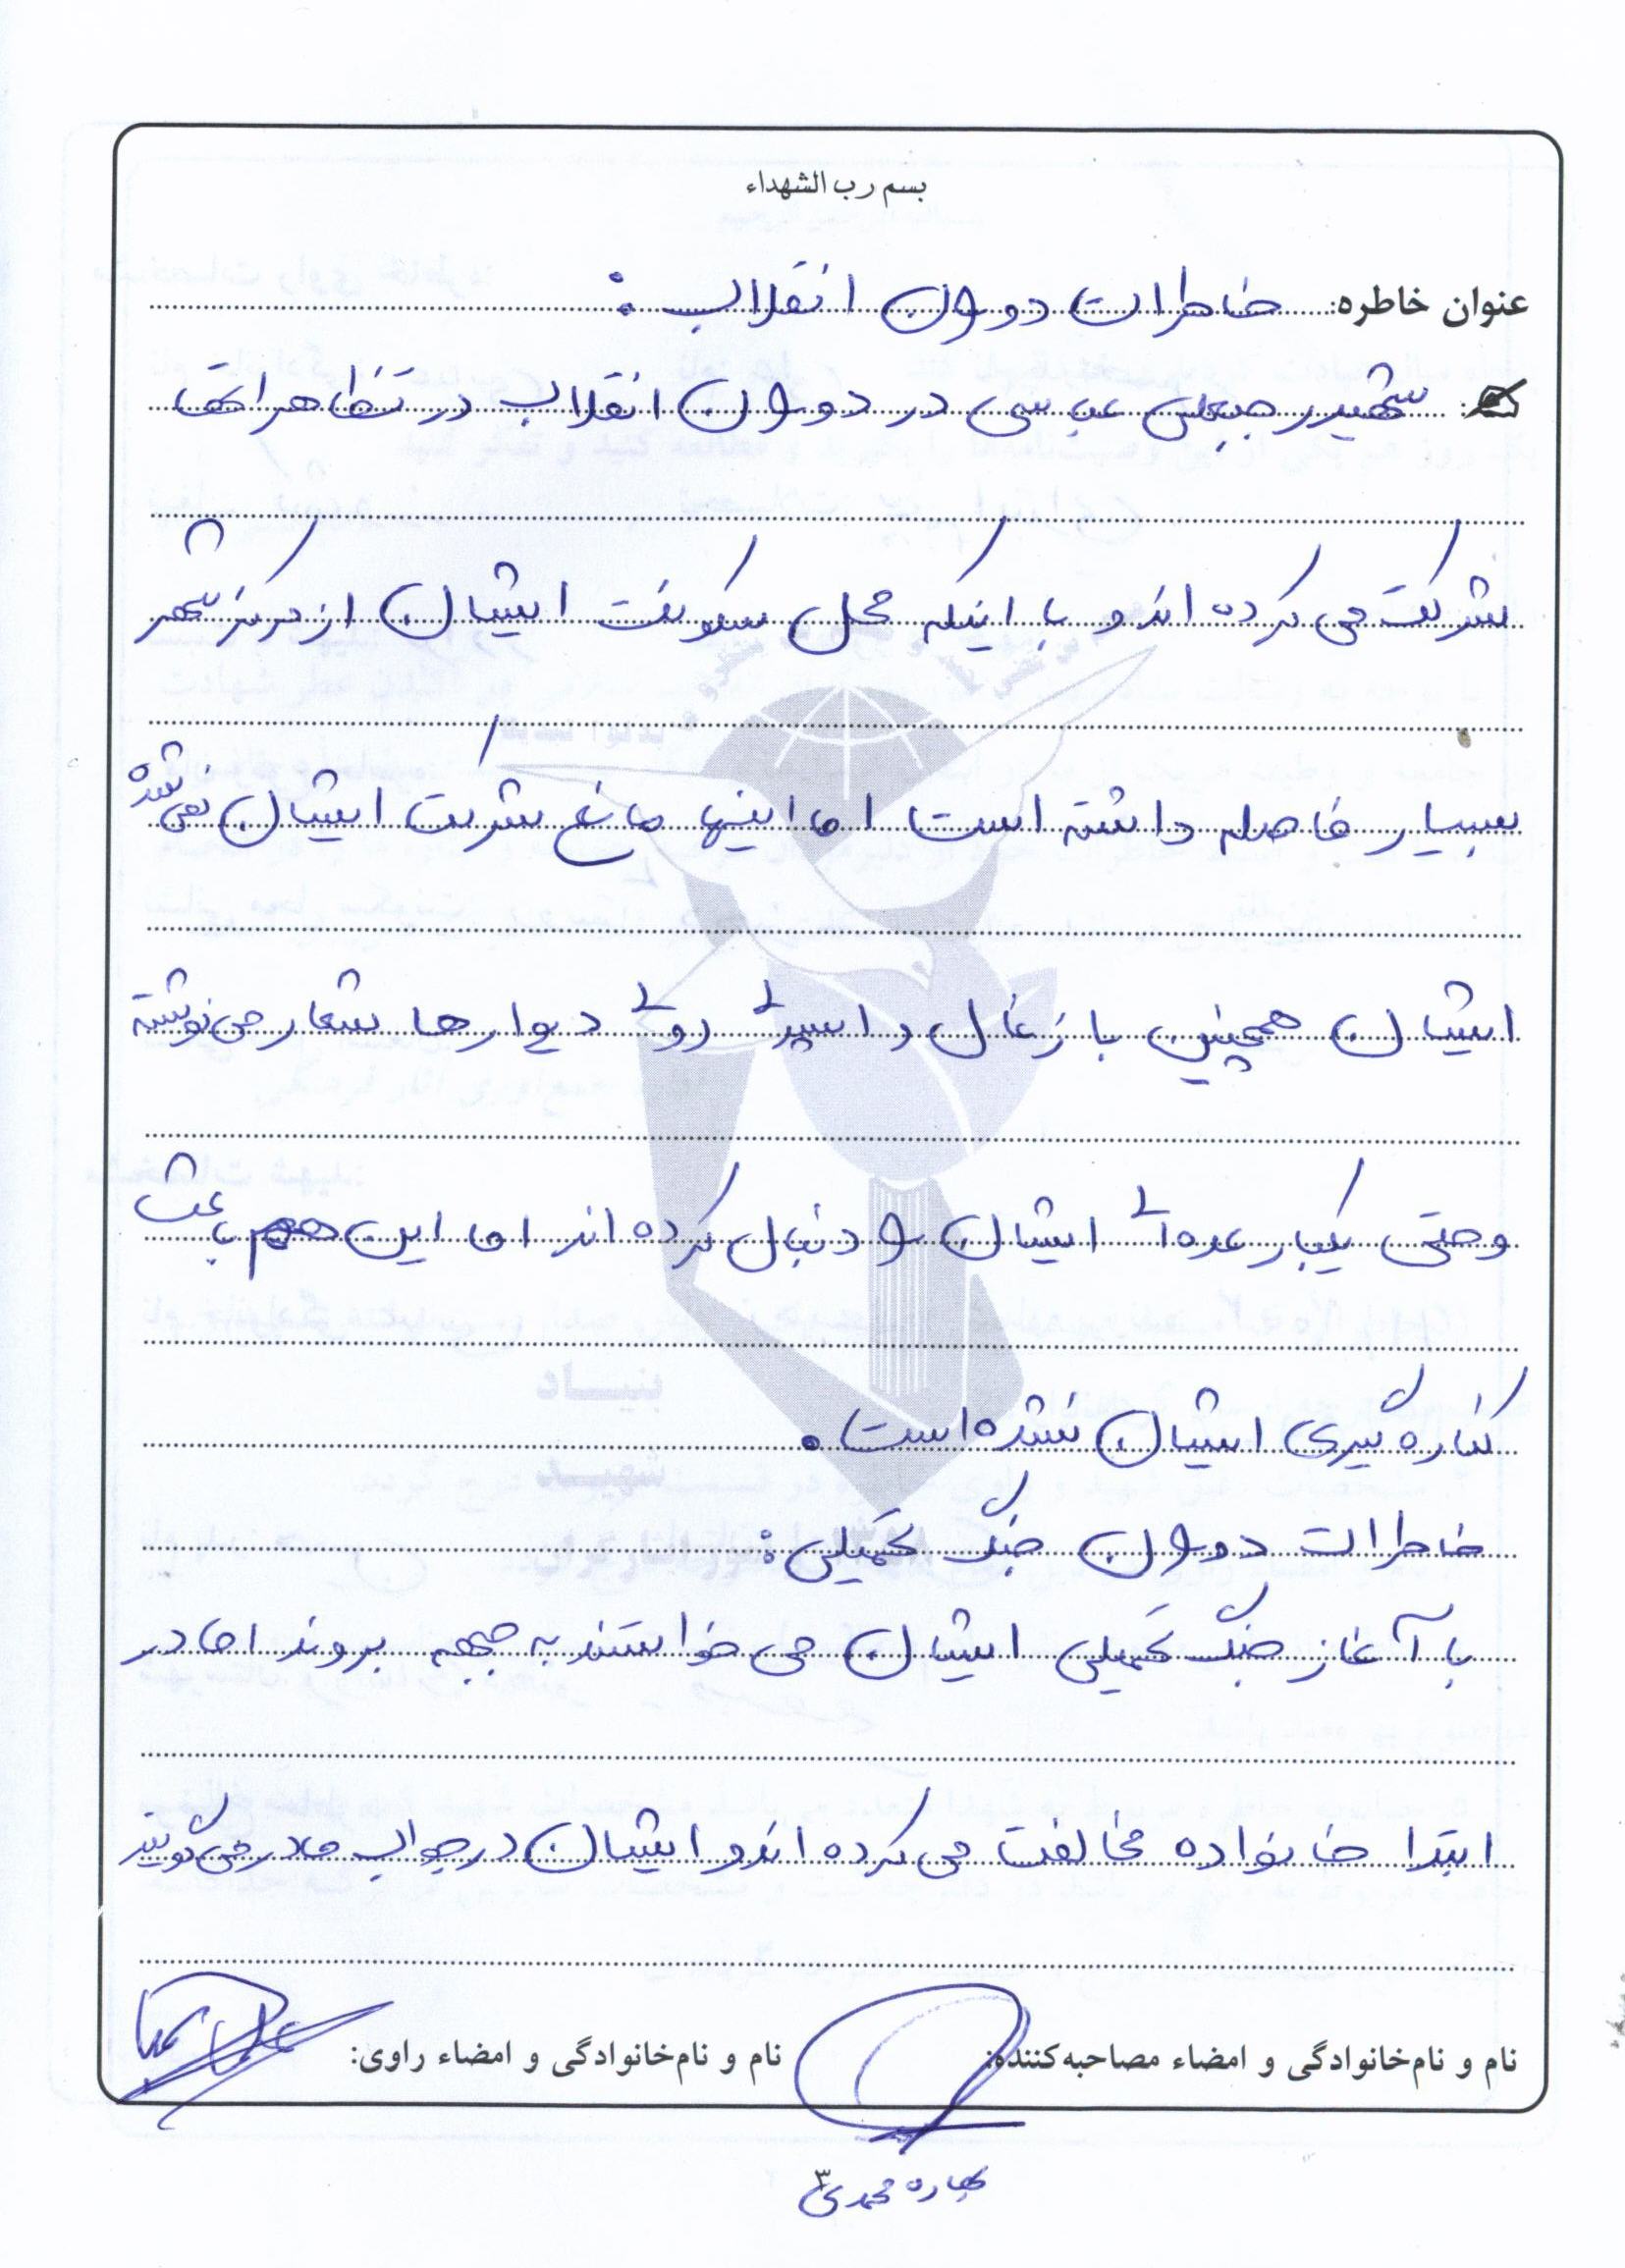 بسم رب الشهداء
عنوان خاطره: خاطرات دوران انقلاب :
شهید رجبعلی عباسی در دوران انقلاب در تظاهراتها
شرکت می کرده اند و با اینکه محل سکونت ایشان از مرکز شهر
بسیار فاصله داشته است اما اینها مانع شرکت ایشان نمی شده
ایشان همچنین با زغال و اسپرے روے دیوارها شعار می نوشته
و حتی یکبار عده اے ایشان را دنبال کرده اند اما این هم باعث
کناره گیری ایشان نشده است.
خاطرات دوران جنگ تحمیلی:
با آغاز جنگ تحمیلی ایشان می خواستند به جبهه بروند اما در
ابتدا خانواده مخالفت می کرده اند و ایشان در جواب مادر می گویند
نام و نام‌خانوادگی و امضاء مصاحبه‌کننده:
نام و نام‌خانوادگی و امضاء راوی:
۳
محمدی